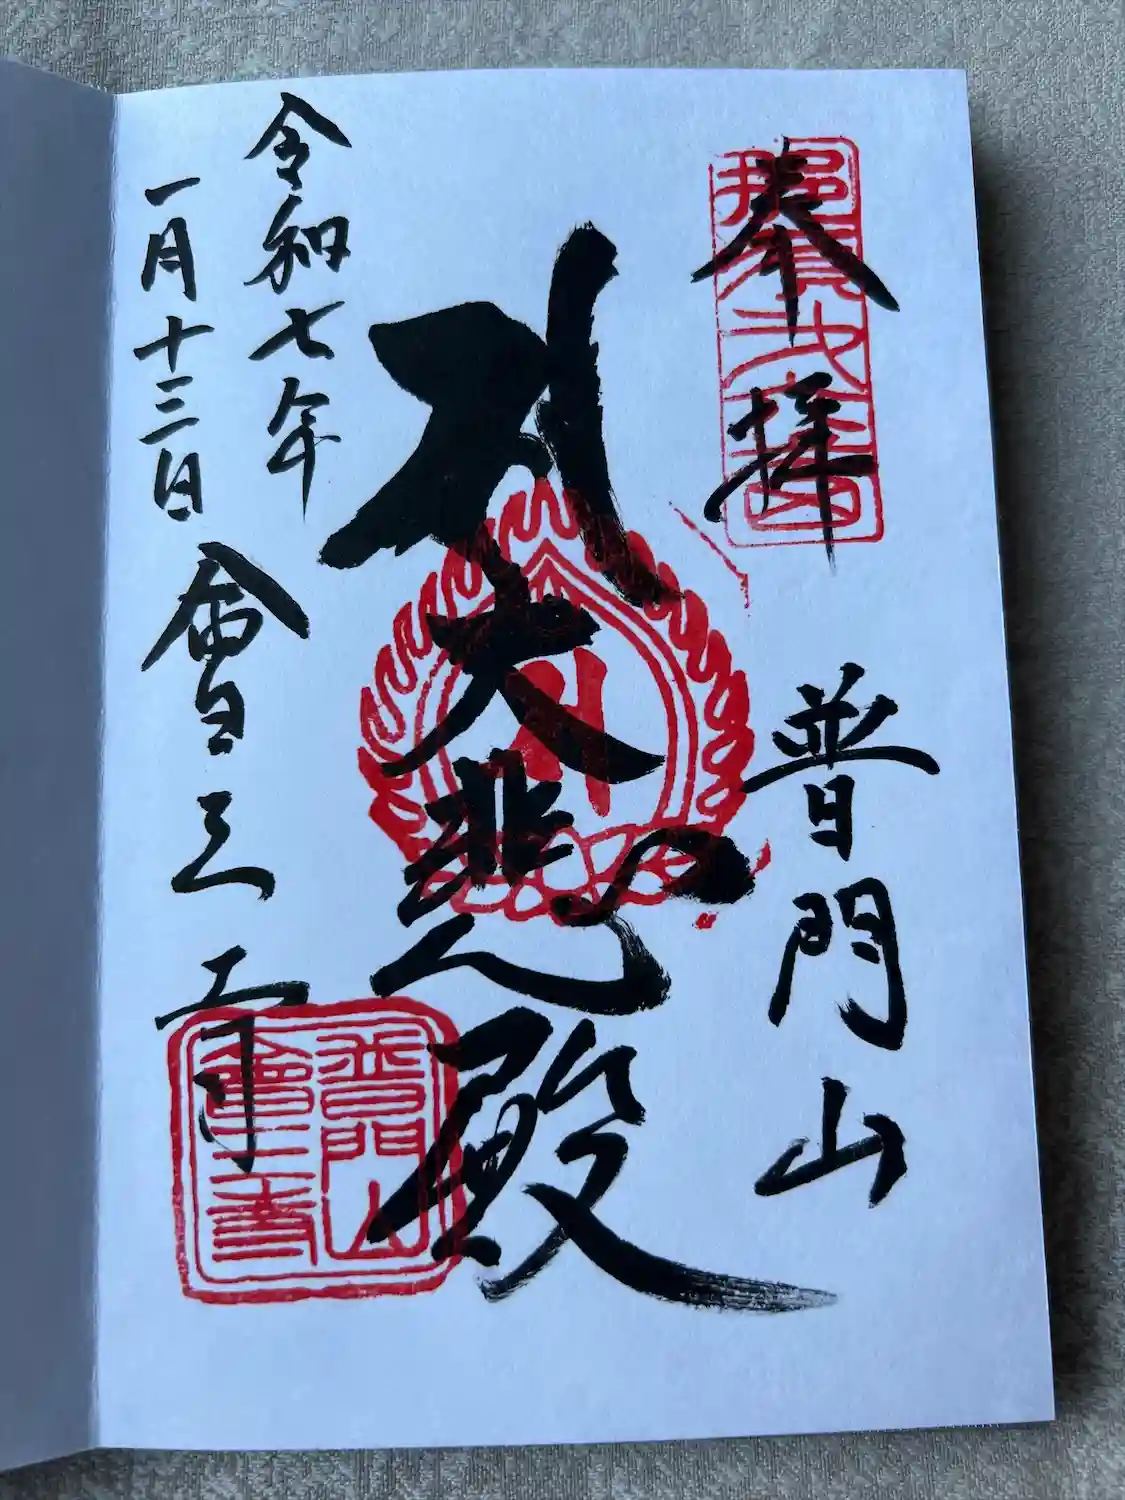 奉拝
那須弐十四
普門山
大悲殿
令和七年
一月十三日
會三寺
普門山
會三寺